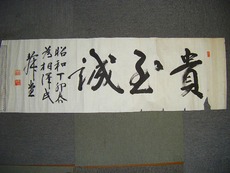 貴至誠
昭和丁卯春
為相澤氏